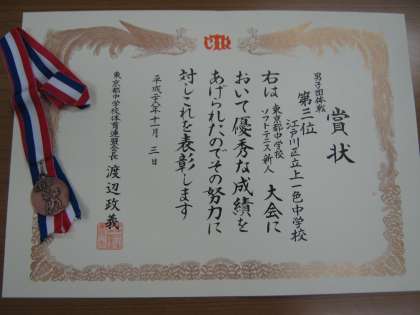 賞状
男子団体戦
第三位
江戸川区立上一色中学校
右は東京都中学校
ソフトテニス新人
大会に
おいて優秀な成績を
あげられたのでその努力に
対しこれを表彰します
平成二十八年十一月三日
東京都中学校体育連盟会長
渡辺政義